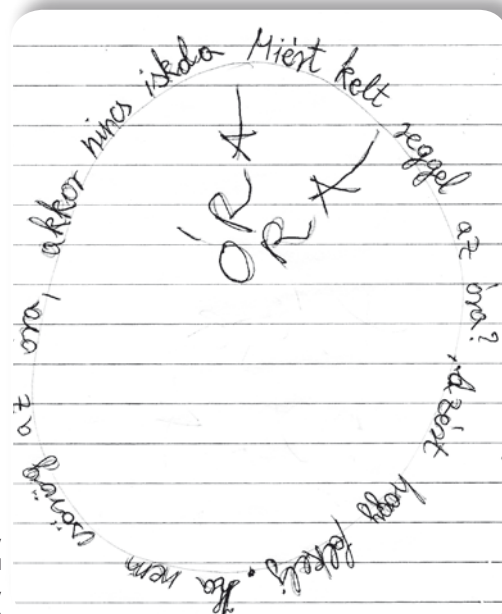 Miért kelt reggel az óra? Azért hogy felkelj. Ha nem csörög az óra akkor nincs iskola
ÓRA
ÓRA